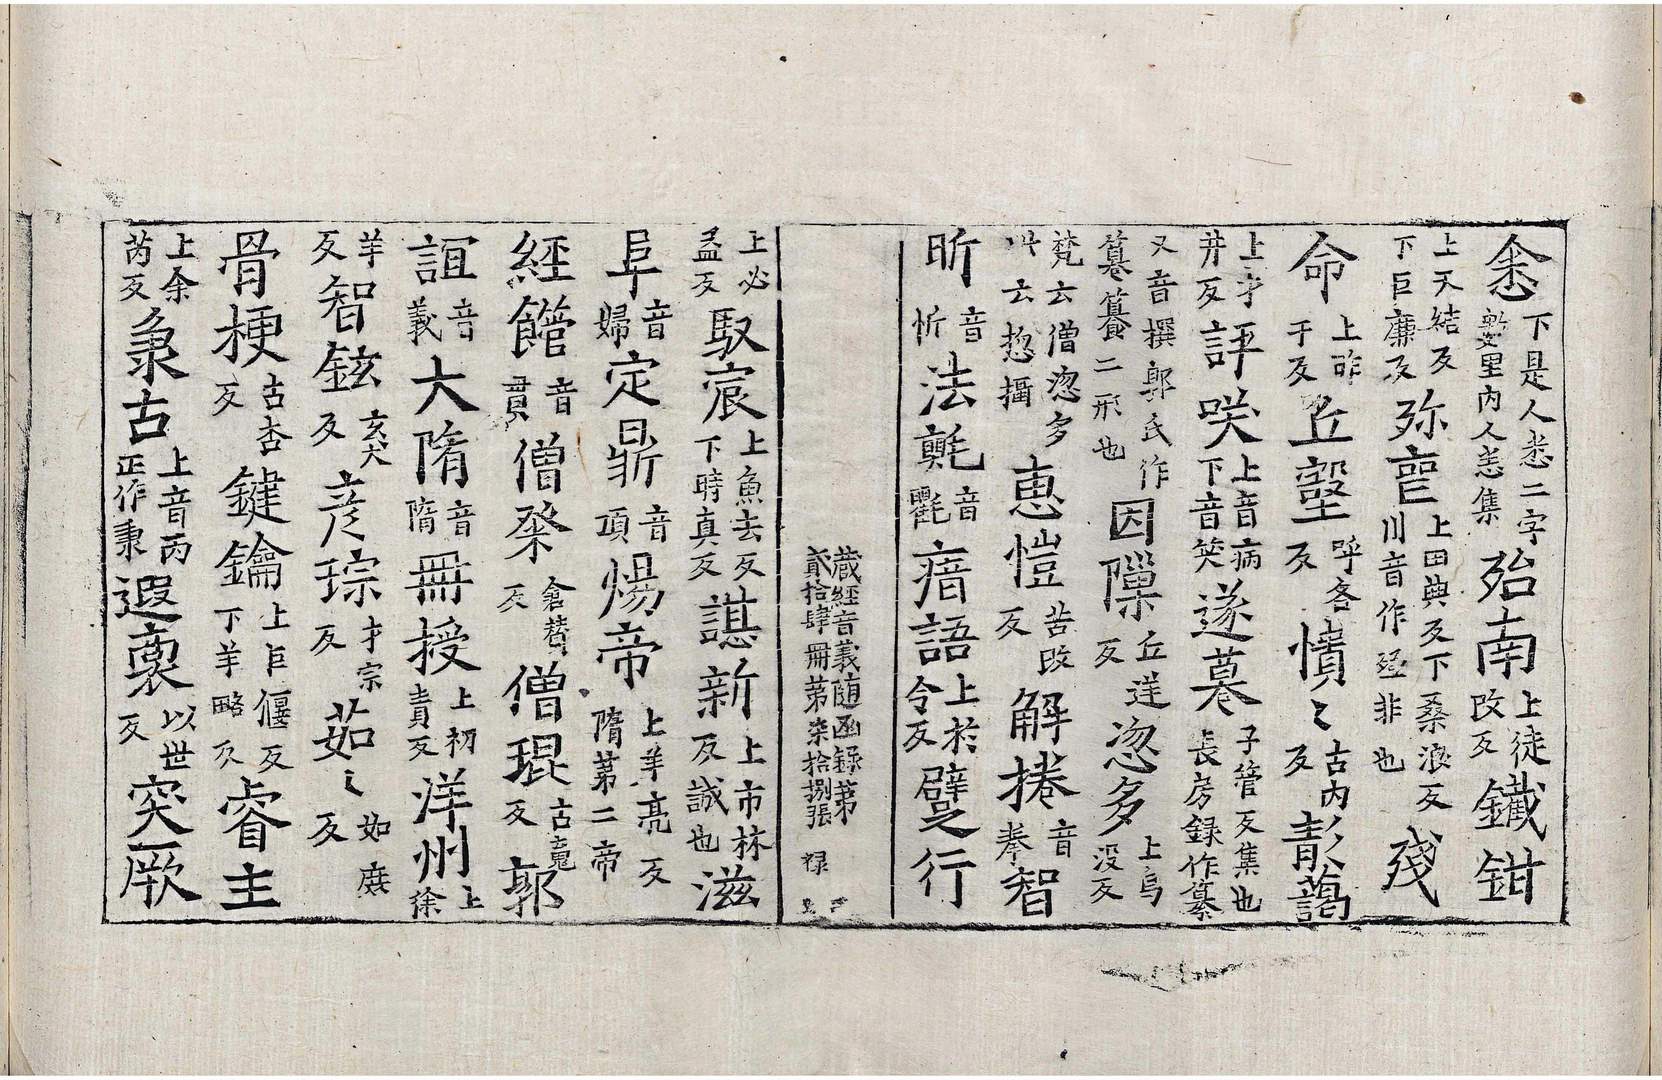 恚下是人悉二字數里内人恙集殆南上徒改反鐵鉗
上天結反下巨廉反殄㐮上田典反下桑浪反川音作殛非也殘
命上昨干反丘壑呼各反憒〻古内反彰藹
上才井反評咲上音病下音笑遂纂子管反集也長房録作纂
又音撰郭氏作篹䉵二形也因隟丘逆反忽多上烏没反
梵云僧㳷多此云惣攝惠愷苦改反解捲音拳智
昕音忻法㲲音氎瘖語上於今反躄行
藏經音義随函録第貳拾肆冊第柒拾捌張 禄
上必孟反馭宸上魚去反下時真反諶新上市林反誠也滋
阜音婦定鼎音頂煬帝上羊亮反隋第二帝
經館音貫僧粲倉贊反僧琨古䰟反郭
誼音義大隋音隋冊授上初責反洋州上徐
羊反智鉉玄犬反彥琮才宗反茹〻如庶反
骨梗古杏反鍵鑰上巨偃反下羊略反睿主
上余芮反秉古上音丙正作秉遐裔以世反突厥